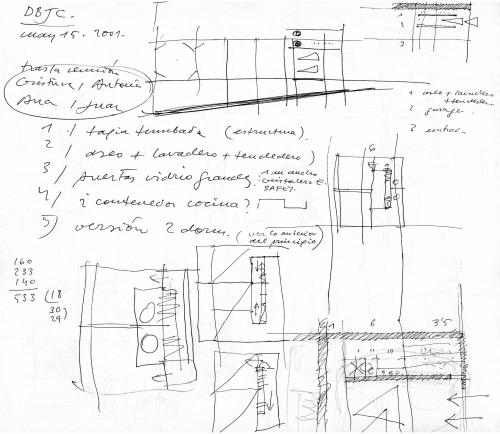 DBJC.
may 15. 2001.
tras la reunión
Cristina, Antonio
Ana, Juan
1 / tapia tumbada (estructura).
2 / aseo + lavadero + tendedero)
3 / puertas vidrio grandes. 1 m ancho
cristalero E.
4 / ¿contenedor cocina?
5) versión 2 dorm. (ver lo anterior
del principio)
160
233
140
533 (18
30
29)
1
2
3
1 aseo + lavadero
+ tendedero
2 garage.
3 entrada
6
6
3'5